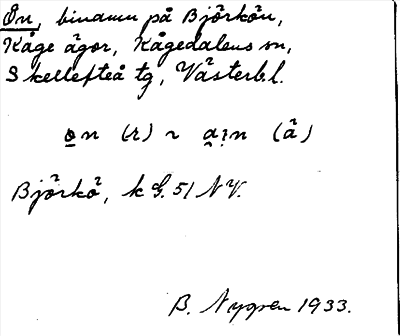 Ön, binamn på Björkön,
Kåge ägor, Kågedalens sn,
Skellefteå tg, Västerb.l.
ɵn (r) ~ a:n (å)
Björkö, k G. 51 NV.
B. Nygren 1933.